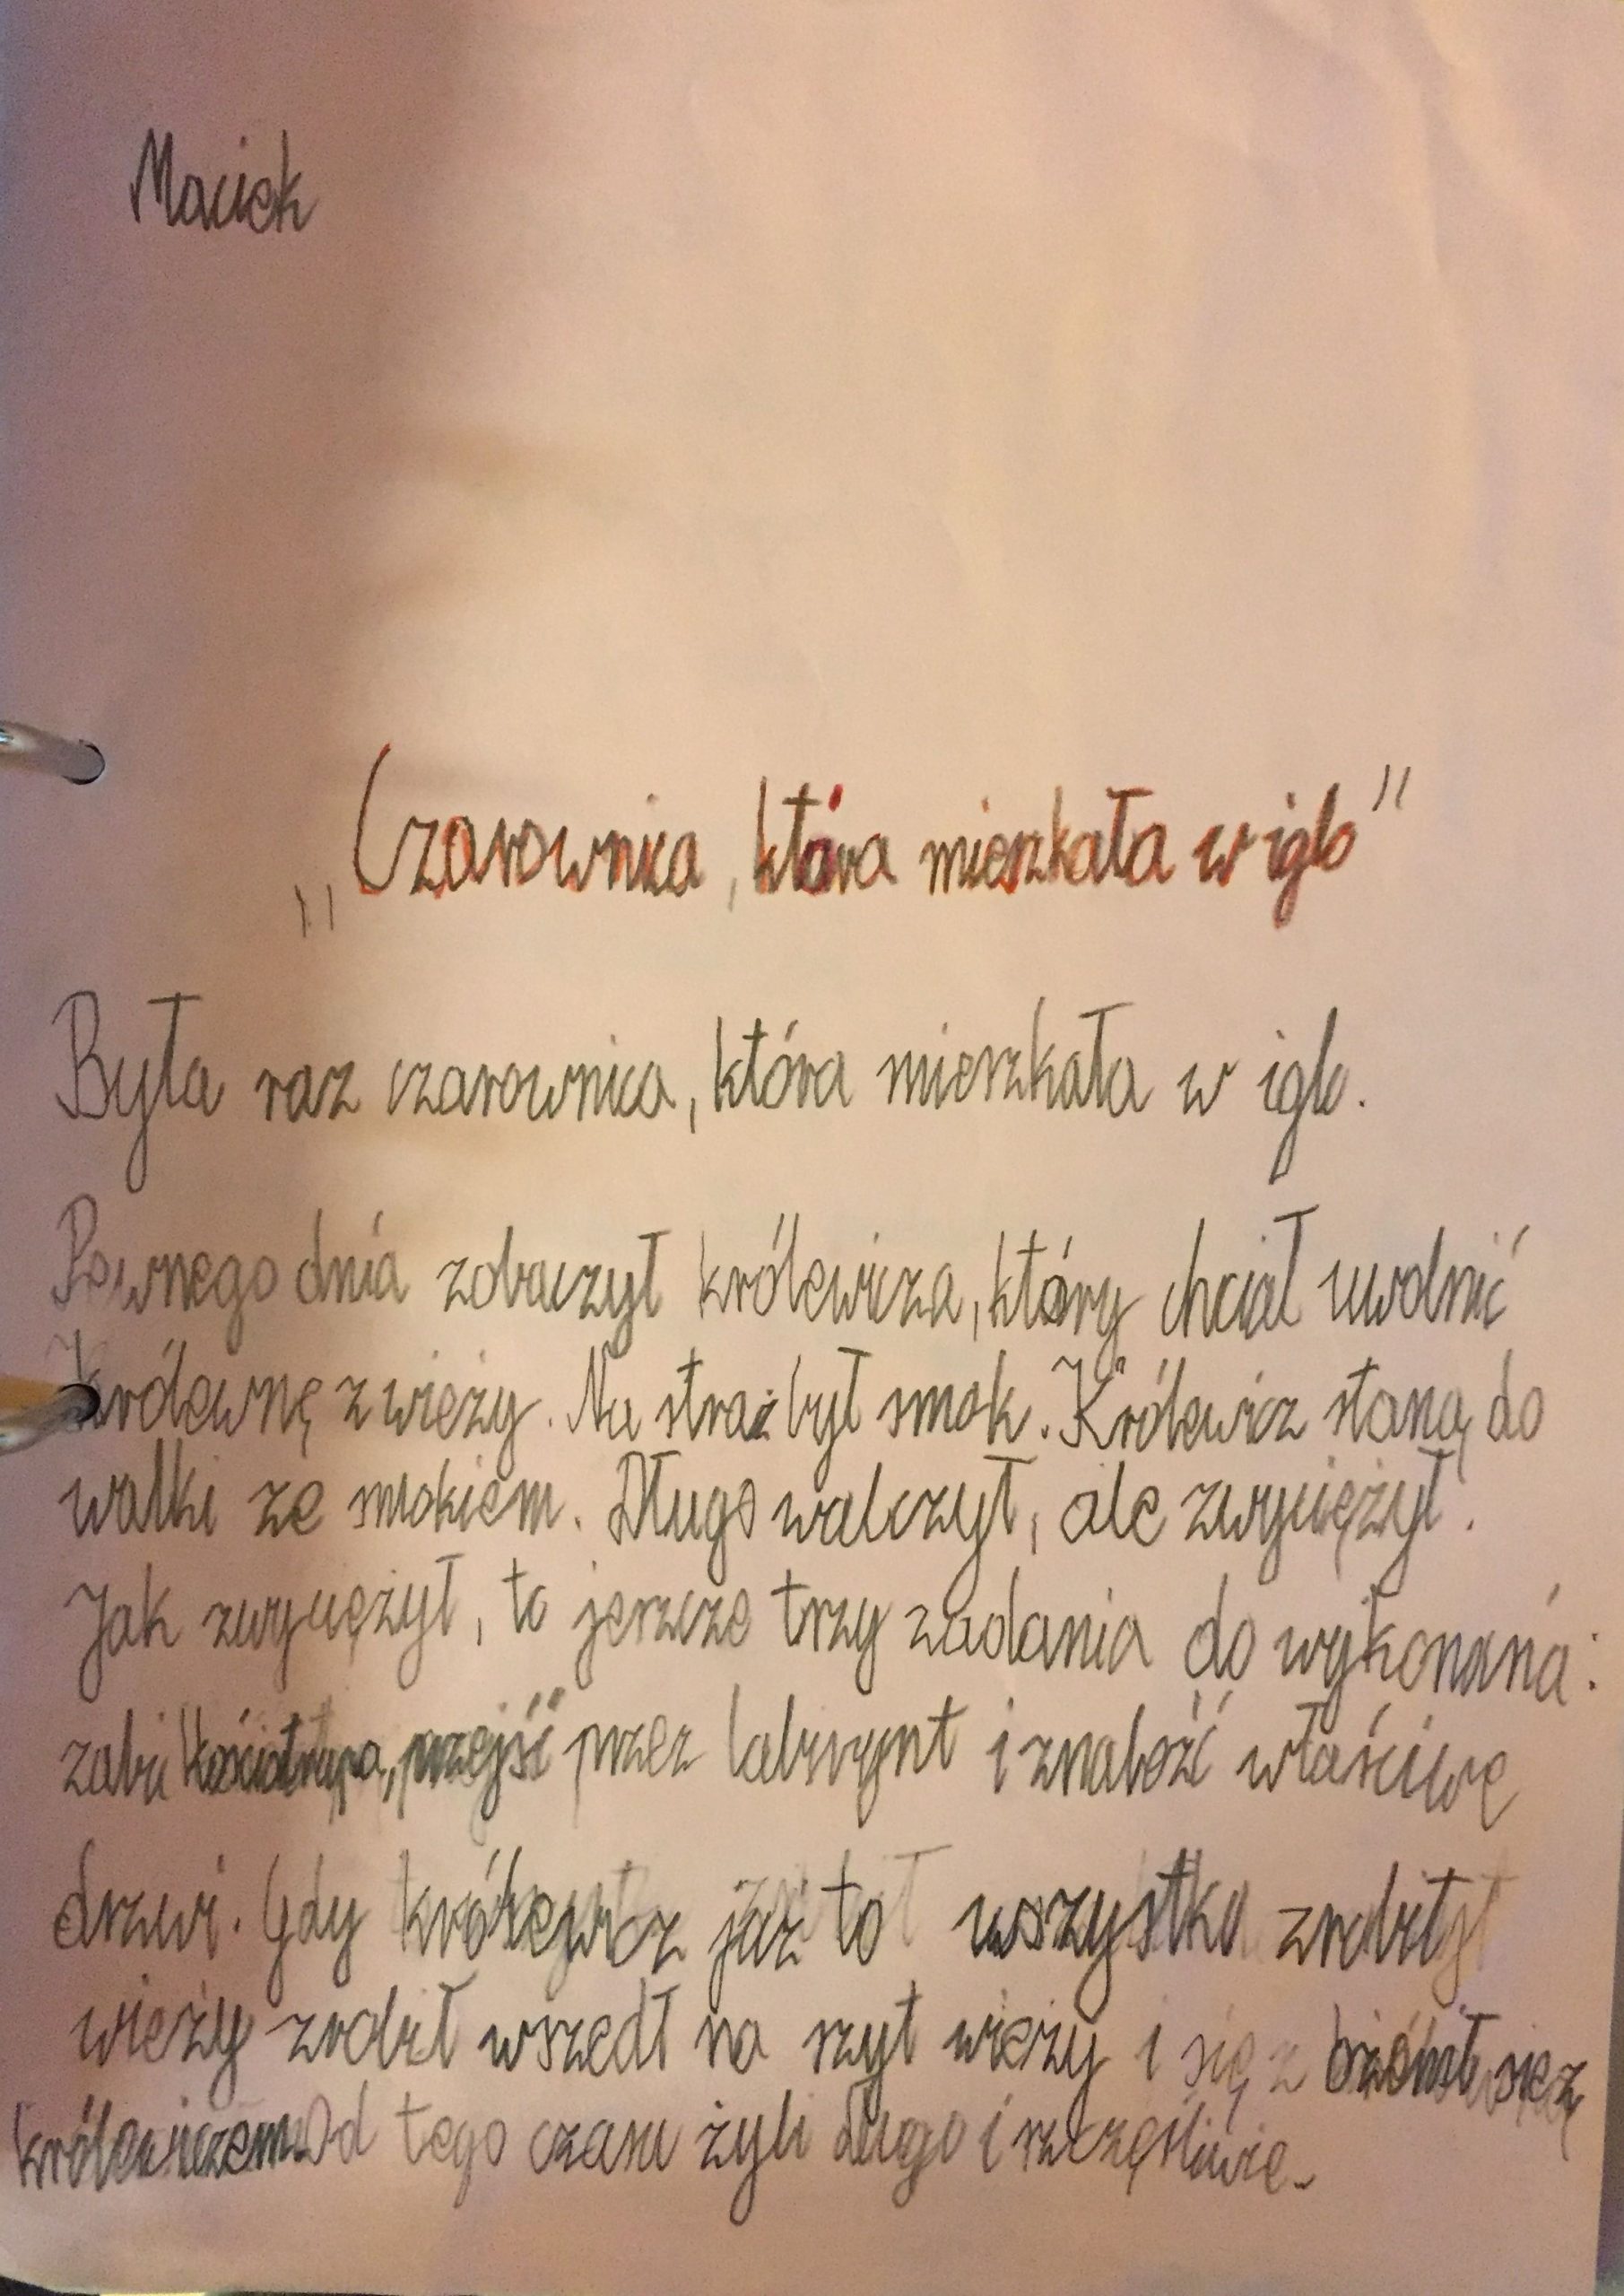 Maciek
„Czarownica, która mieszkała w iglo"
Była raz czarownica, która mieszkała w iglo.
Pewnego dnia zobaczył królewicza, który chciał uwolnić
królewnę z wieży. Na straż był smok. Królewicz staną do
walki ze smokiem. Długo walczył, ale zwyciężył.
Jak zwyciężył, to jeszcze trzy zadania do wykonana:
zabić kościotrupa, przejść przez labirynt i znaleźć właściwę
drzwi. Gdy królewicz już to wszystko zrobił
wieży zrobił wszedł na szyt wieży i się z się z
królewiczem. Od tego czasu żyli długo i szczęśliwie.